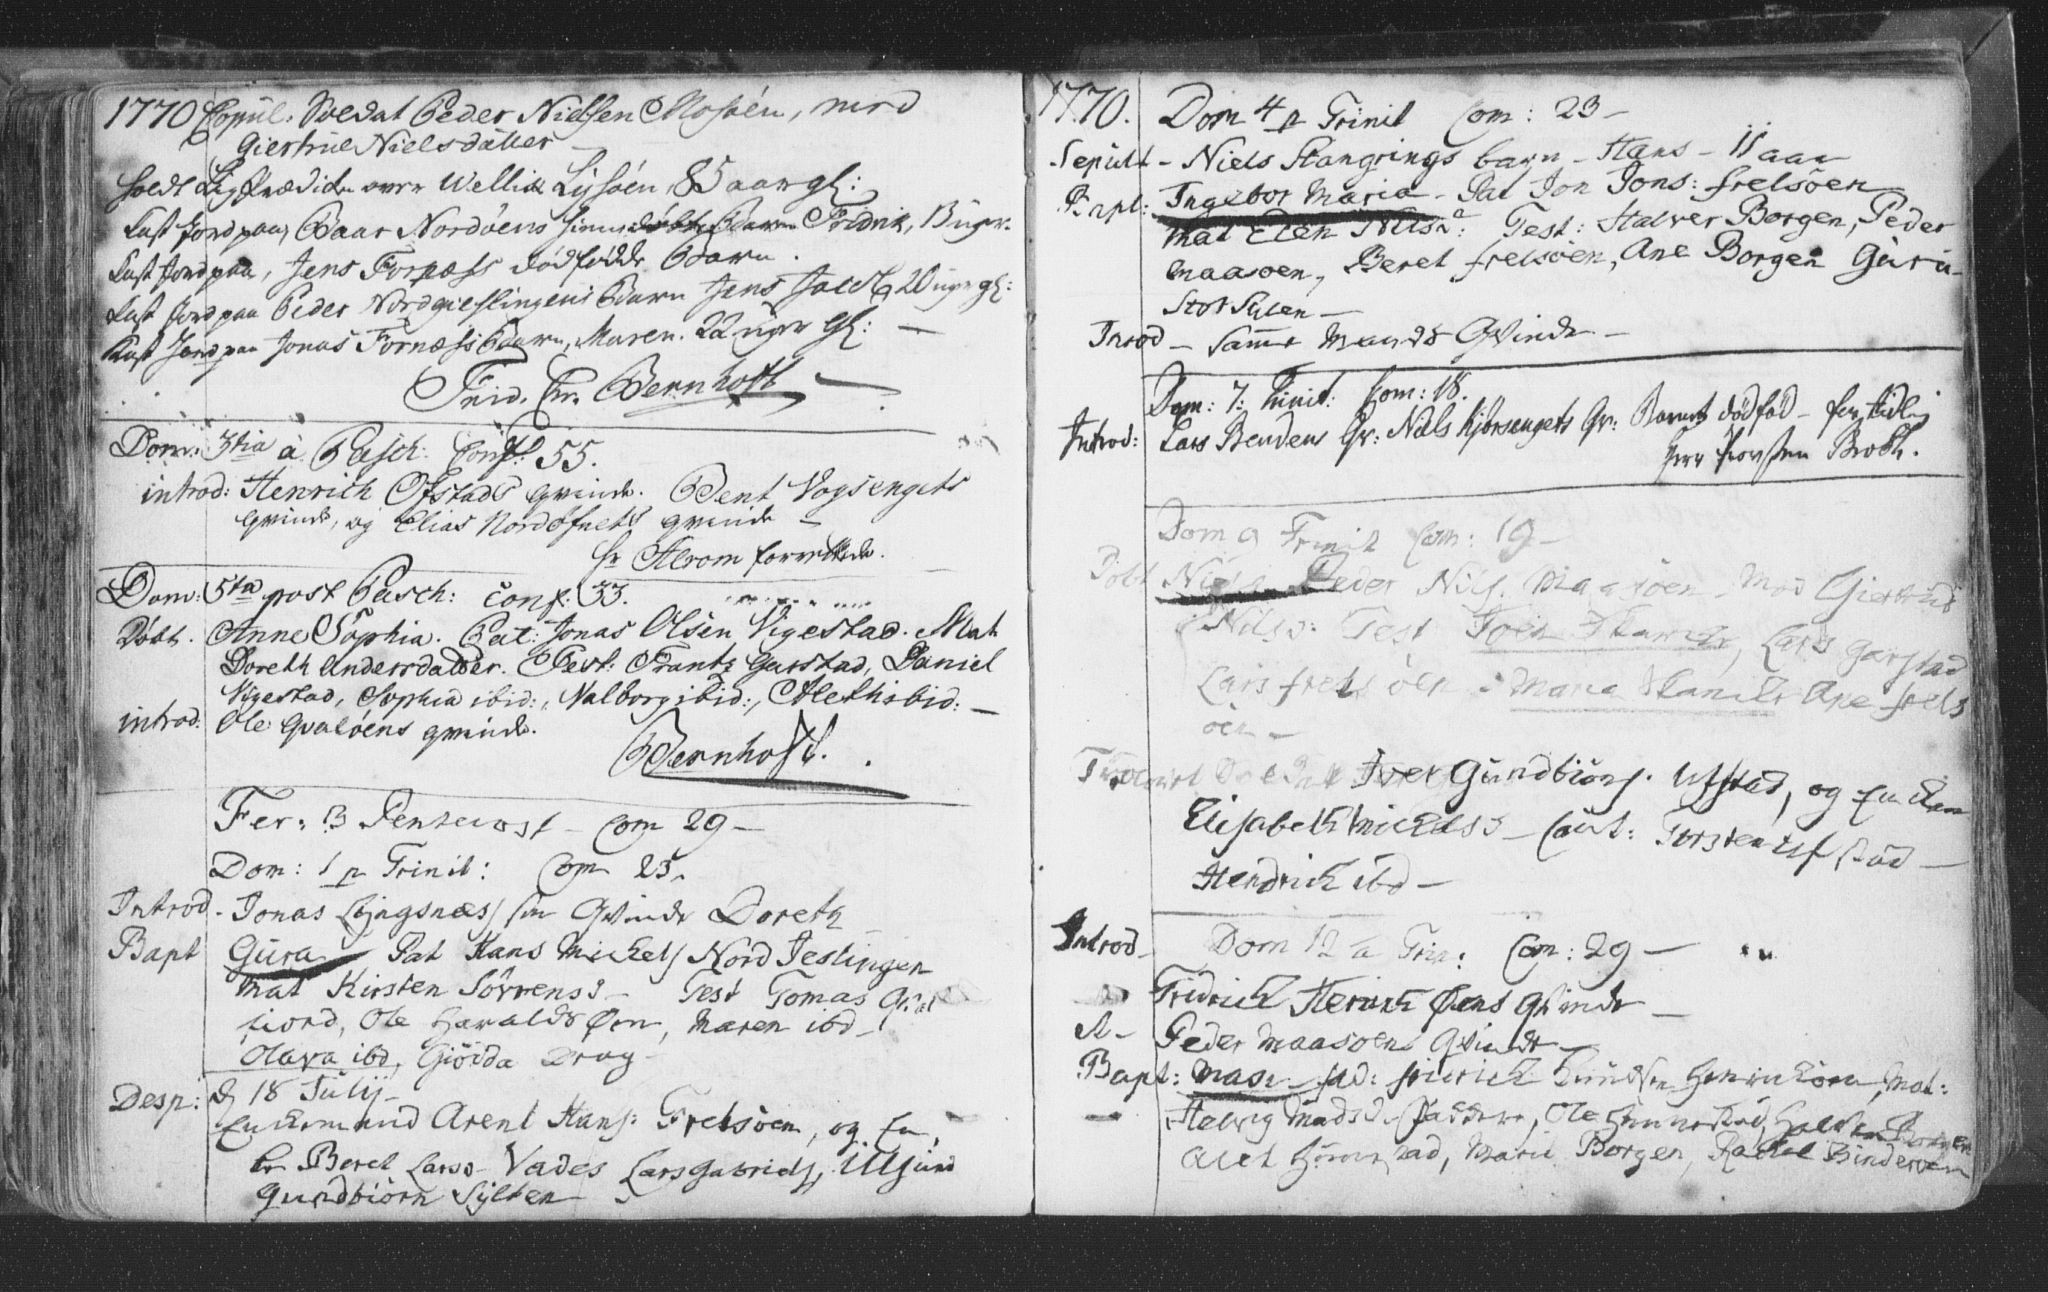 1770 Copul: Soldat Peder Nielssen Mosöen, med
Giertrue Nielsdatter
holdt Ligprædiken over Lysöen, 85 aar gl:
Kast Jord paa, Baar Nordöens Barn Fridrik, 13 uger.
Kast Jord paa, Jens Fornæss dödfödde Barn.
Kast Jord paa Peder Nordgieslingens Barn Jens Jacob, 20 uger gl:
Kast Jord paa Jonas Fornæss Barn, Maren. 22 uger gl: —
Frid. Chr. Bernhoft
Dom: 3tia a Pasch: Conf: 55.
introd: Henrich Ofstads qvinde. Bent Vogsengets
qvinde, og Elias Nordöfnets qvinde —
Hr Alrom forrettede.
Dom: 5ta post Pasch: conf: 33.
Döbt. Anne Sophia. Pat: Jonas Olsen Vigestad. Mat
Doreth Andersdatter. Test: Frantz Garstad, Daniel
Vigestad, Sophia ibid:, Valborg ibid:, Aleth ibid: —
introd: Ole Qvalöens qvinde.
Bernhoft.
Fer: 3 Pentecost — Com 29 —
Dom: 1 p Trinit: Com 25.
Introd. Jonas Lyngsnæs sin Qvinde Doreth
Bapt Gura Pat Hans Michels Nord Jeslingen
mat Kirsten Sörrens — Test Tomas
fiord, Ole Haralds Öen, Maren ibd —
Olava ibd, Drag —
Desp: d 18 Julij —
Enkemand Arent Hans: Frelsöen, og En
ke Beret Lars Vades Lars Gabriels,
Gundbiörn Sylten
1770. Dom 4 p Trinit Com: 23 —
Sepult — Niels Skangrings barn — Hans — 11 aar
Bapt: Ingebor Maria — Pat Jon Jons: frelsöen
mat Elen Nils: Test: Halver Borgen, Peder
maasoen, Beret frelsöen, Ane Borgen Guru
Stor Sulen —
Introd — Samme Mands Qvinde —
Dom: 7: Trinit: Com: 18.
Introd: Lars Bendens Qv: Niels Kiörsengets Qv: Barnet dödföd —
Herr Broth.
Dom 9 Trinit Com: 19 —
Döbt Peder Nils. Maasöen — Mod Giertrud
Nilsd: Test Lars Garstad
Lars frelsöen: Maria Ane frels
öen —
Iver Gundbiörs. Ufstad, og
Elisabeth Michels — Caut: Torsten Ufstad —
Hendrich ibd —
Introd — Dom 12 a Trin: Com: 29 —
Fridrich Henrich Öens Qvinde —
Peder Maasoens Qvinde —
Bapt: Mase — fad: fridrich Mat:
Helvig Madsd. Faddere, Ole
Alet Marie Borgen, Rachel